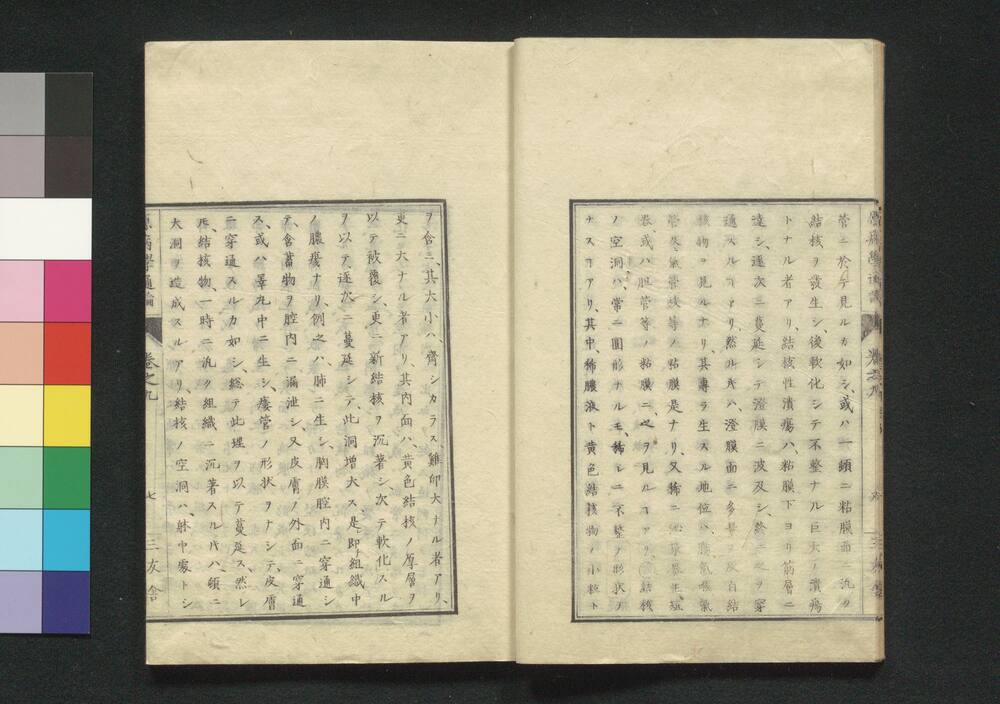 管ニ於テ見ルカ如シ、或ハ一頭ニ粘膜面ニ汎ク
結核ヲ發生シ、後軟化シテ不整ナル巨大ノ潰瘍
トナル者アリ、結核性潰瘍ハ、粘膜下ヨリ筋層ニ
達シ、逐次ニ蔓延シテ澄膜ニ波及シ、終ニ之ヲ穿
通スルコアリ、然ル𪜈、澄膜面ニ多
核物ヲ見ルナリ、其專ラ生スル地位ハ、
管及氣管岐等ノ粘膜是ナリ、又稀ニ
或ハ胆管等ノ粘膜ニ、之ヲ見ルコアリ、結核
ノ空洞ハ、常ニ圓形ナルモ、稀レニ不整ノ形状ヲ
ナスコアリ、其中、稀膿液ト黄色結核物ノ小粒ト
卷之九
ヲ含ミ、其大小ハ、齊シカラス、雞卵大ナル者アリ、
更ニ大ナル者アリ、其内面ハ、黄色結核ノ厚層ヲ
以テ被覆シ、更ニ新結核ヲ沉著シ、次テ軟化スル
ヲ以テ、逐次ニ蔓延シテ、此洞増大ス、是即組織中
ノ膿瘍ナリ、例之ハ、肺ニ生シ、胸膜腔内ニ穿通シ
テ、含蓄物ヲ腔内ニ漏泄シ、又皮膚ノ外面ニ穿通
ス、或ハ睾丸中ニ生シ、瘻管ノ形状ヲナシテ、皮膚
ニ穿通スルカ如シ、総テ此理ヲ以テ蔓延ス、然レ
𪜈、結核物、一時ニ汎ク組織ニ沉著スル𪜈ハ、頓ニ
大洞ヲ造成スルアリ、結核ノ空洞ハ、躰中處トシ
病學通論
卷之九
七
三友舎